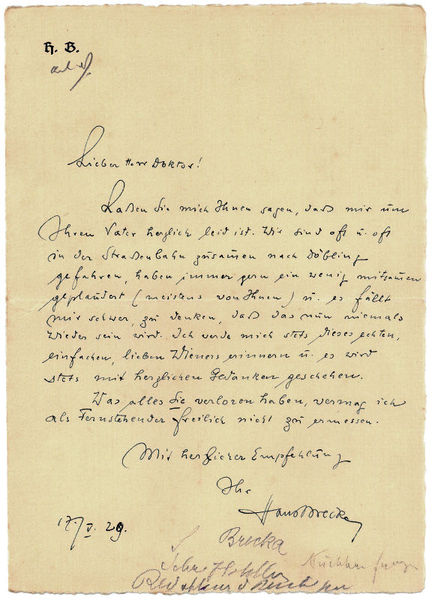 H. B.
Lieber Herr Doktor!
Laßen Sie mich Ihnen sagen, daß mir um
Ihren Vater herzlich leid ist. Wir sind oft u. oft
in der Straßenbahn zusammen nach Döbling
gefahren, haben immer gern ein wenig mitsamen
geplaudert (meistens von Ihnen) u. es fällt
mir schwer, zu denken, daß das nun niemals
wieder sein wird. Ich werde mich stets dieses echten,
einfachen, lieben Wieners erinnern u. es wird
stets mit herzlichen Gedanken geschehen.
Was alles Sie verloren haben, vermag ich
als Fernstehender freilich nicht zu ermessen.
Mit herzlicher Empfehlung
Ihr
Hans Brecka
17/V. 29.
Brecka